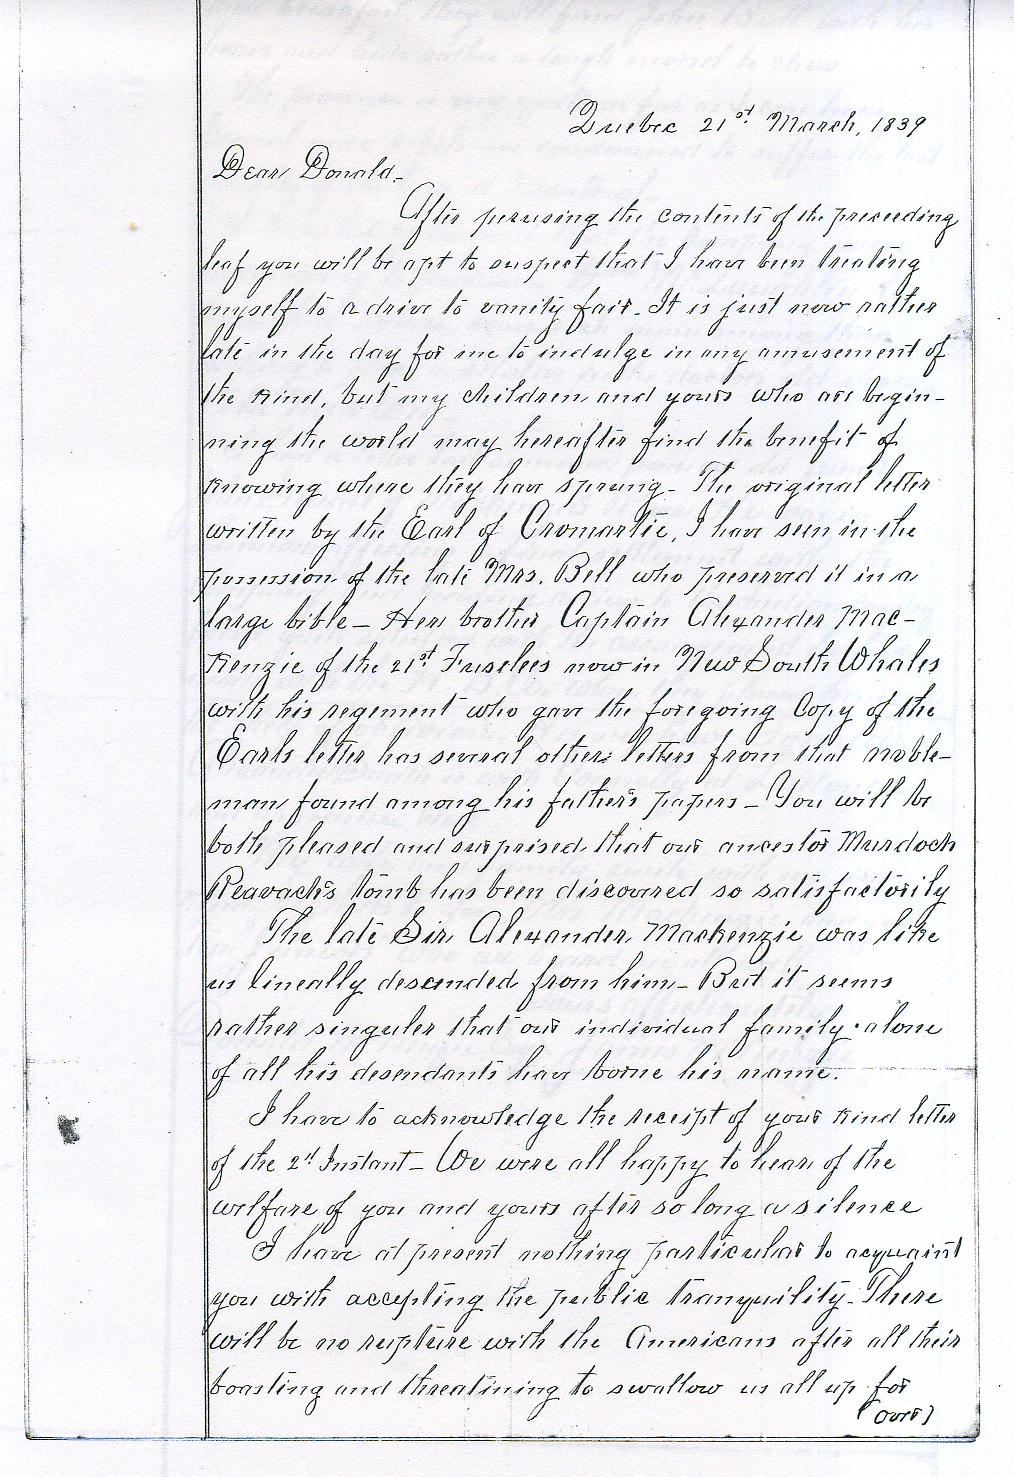 Quebec 21st March, 1839
Dear Donald.
After perusing the contents of the preceeding
leaf you will be apt to suspect that I have been treating
myself to a drive to vanity fair. It is just now rather
late in the day for me to indulge in any amusement of
the kind, but my children and yours who are begin-
ning the world may hereafter find the benefit of
knowing where they have sprung - The original letter
written by the Earl of Cromartie, I have seen in the
possession of the late Mrs. Bell who preserved it in a
large bible - Her brother Captain Alexander Mac-
Kenzie of the 21st Fuselees now in New South Whales
with his regement who gave the foregoing Copy of the
Earls letter has several other letters from that noble-
man found among his father's papers - You will be
both pleased and surprised that our ancestor Murdoch
Reavach's tomb has been discovered so satisfactorily
The late Sir Alexander Mackenzie was like
us lineally descended from him - But it seems
rather singuler that our individual family alone
of all his desendants have borne his name.
I have to acknowledge the receipt of your kind letter
of the 2d Instant - We were all happy to hear of the
welfare of you and yours after so long a silence
I have at present nothing particular to acquaint
you with accepting the public tranquility - There
will be no rupture with the Americans after all their
boasting and threatining to swallow us all up for
(over)